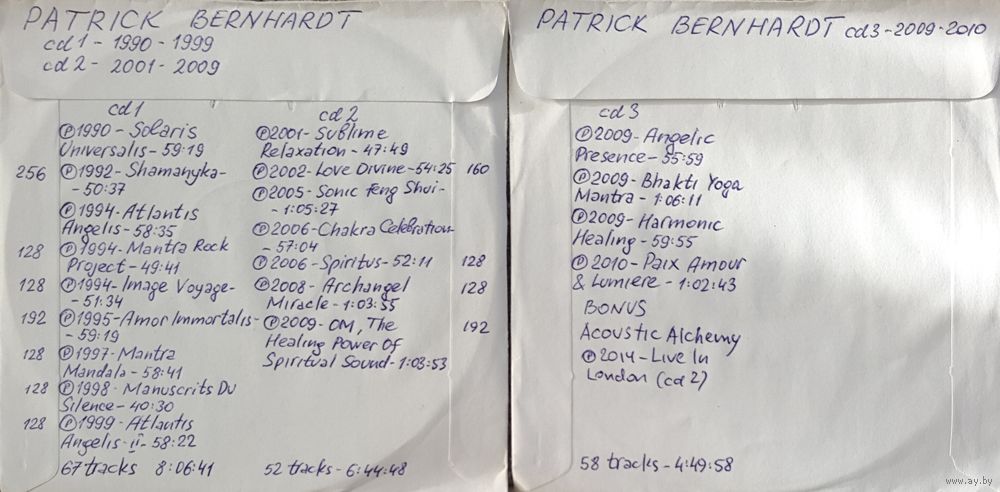 PATRICK BERNHARDT
cd1 - 1990 - 1999
cd2 - 2001 - 2009
cd1
Ⓟ1990 - Solaris
Universalis - 59:19
256 Ⓟ1992 - Shamanyka -
- 50:37
Ⓟ1994 - Atlantis
Angelis - 58:35
128 Ⓟ1994 - Mantra Rock
Project - 49:41
128 Ⓟ1994 - Image Voyage -
- 51:34
192 Ⓟ1995 - Amor Immortalis -
- 59:19
128 Ⓟ1997 - Mantra
Mandala - 58:41
128 Ⓟ1998 - Manuscrits Du
Silence - 40:30
128 Ⓟ1999 - Atlantis
Angelis - II - 58:22
67 tracks 8:06:41
cd2
Ⓟ2001 - Sublime
Relaxation - 47:49
Ⓟ2002 - Love Divine - 54:25 160
Ⓟ2005 - Sonic Feng Shui -
- 1:05:27
Ⓟ2006 - Chakra Celebration -
- 57:04
Ⓟ2006 - Spiritus - 52:11 128
Ⓟ2008 - Archangel 128
Miracle - 1:03:55
Ⓟ2009 - OM, The 192
Healing Power Of
Spiritual Sound - 1:03:53
52 tracks - 6:44:48
PATRICK BERNHARDT cd3 - 2009 - 2010
cd3
Ⓟ2009 - Angelic
Presence - 55:59
Ⓟ2009 - Bhakti Yoga
Mantra - 1:06:11
Ⓟ2009 - Harmonic
Healing - 59:55
Ⓟ2010 - Paix Amour
& Lumiere - 1:02:43
BONUS
Acoustic Alchemy
Ⓟ2014 - Live In
London (cd2)
58 tracks - 4:49:58
www.ay.by